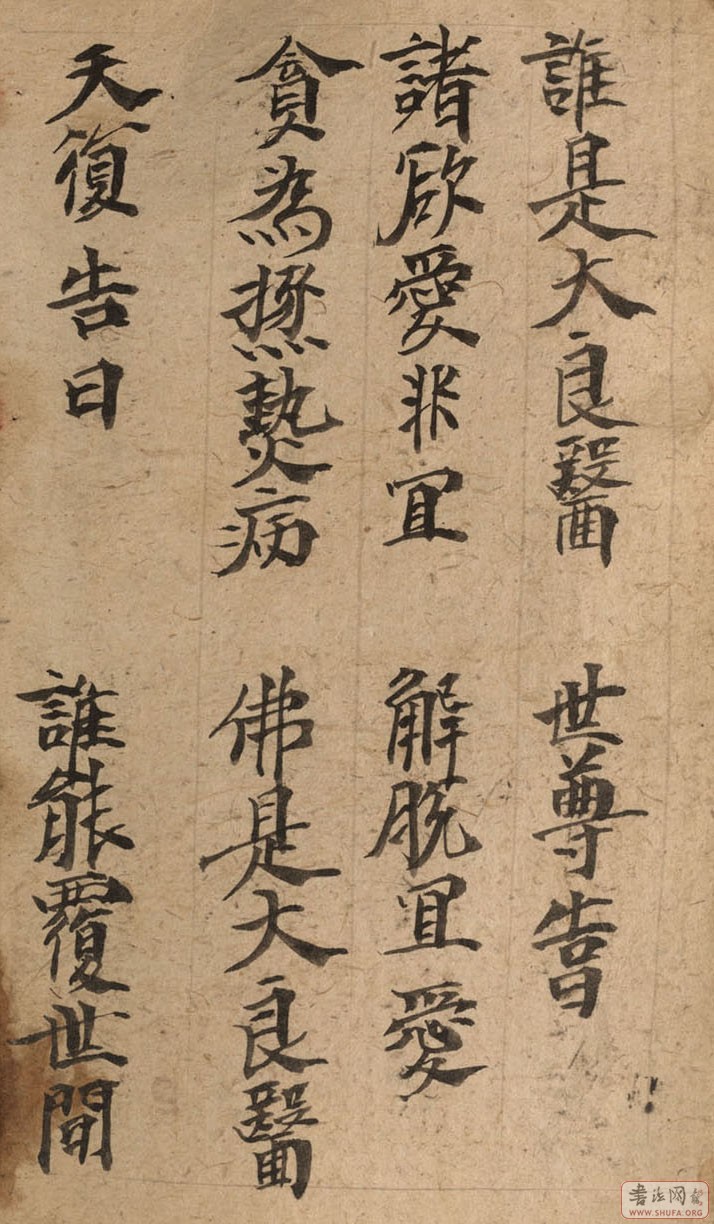 誰是大良醫　世尊告曰
諸欲愛非冝　解脫冝愛
貪為極熱病　佛是大良醫
天復告曰　誰能覆世間
書法网
WWW.SHUFA.ORG